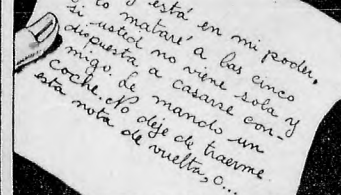 y está en mi poder,
y lo mataré a las cinco
si usted no viene sola y
dispuesta a casarse con-
migo. Le mando un
coche. No deje de traerme
esta nota de vuelta, o...